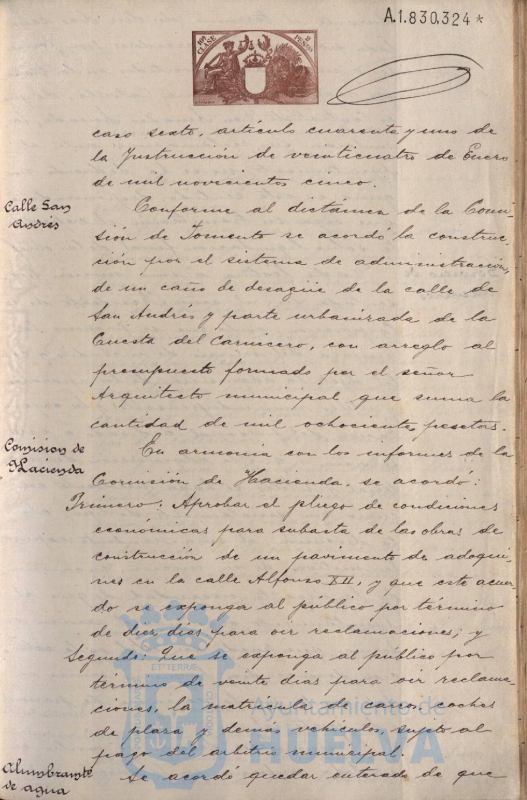 A.1.830,324 *
10ª CLASE 2 PESETAS
caso sexto, artículo cuarenta y uno de
la Instrucción de veinticuatro de Enero
de mil novecientos cinco.
Calle San
Andrés
Conforme al dictámen de la Comi-
sión de Fomento se acordó la construc-
ción por el sistema de administración,
de un caño de desagüe de la calle de
San Andrés y parte urbanizada de la
Cuesta del Carnicero, con arreglo al
presupuesto formado por el señor
Arquitecto municipal que suma la
cantidad de mil ochocientas pesetas.
Comision de
Hacienda
En armonia con los informes de la
Comisión de Hacienda, se acordó:
Primero: Aprobar el pliego de condiciones
económicas para subasta de las obras de
construcción de un pavimento de adoqui-
nes en la calle Alfonso XII, y que este acuer-
do se exponga al público por término
de diez días para oir reclamaciones; y
Segundo: Que se exponga al público por
término de veinte días para oir reclama-
ciones, la matrícula de carros, coches
de plaza y demás vehículos sujeto al
pago del arbitrio municipal.
Alumbramto
de agua
Se acordó quedar enterado de que
Ayuntamiento de
HUELVA